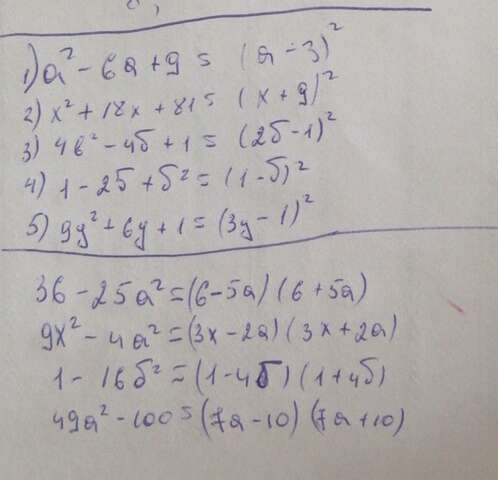 1) a² - 6a + 9 = (a - 3)²
2) x² + 18x + 81 = (x + 9)²
3) 4б² - 4б + 1 = (2б - 1)²
4) 1 - 2б + б² = (1 - б)²
5) 9y² + 6y + 1 = (3y - 1)²
36 - 25a² = (6 - 5a) (6 + 5a)
9x² - 4a² = (3x - 2a) (3x + 2a)
1 - 16б² = (1 - 4б) (1 + 4б)
49a² - 100 = (7a - 10) (7a + 10)